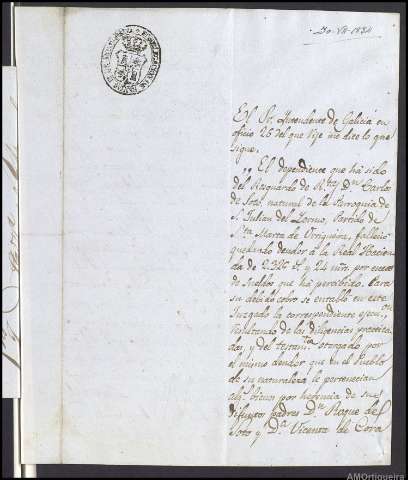 30-VII-1834
El Sr. Intendente de Galicia en
oficio 26 del que rije me dice lo que
sigue.
"El dependiente que há sido
del Resguardo de Rtas Dn. Carlos
de Soto, natural de la Parroquia de
Sn Julian del Partido de
Sta Marta de Ortigueira, falleció
quedando deudor á la Real Hacien
da de y 24 mrs. por exceso
de sueldos que há percibido. Para
su debido cobro se entabló en este
Juzgado la correspondiente ejecuon
resultando de las diligencias practica
das, y del testamto otorgado por
el mismo deudor que en el Pueblo
de su naturaleza le pertenecian
algs bienes por herencia de sus
difuntos padres Dn Roque de
Soto y Da Vicenta de Cora
AMOrtigueira